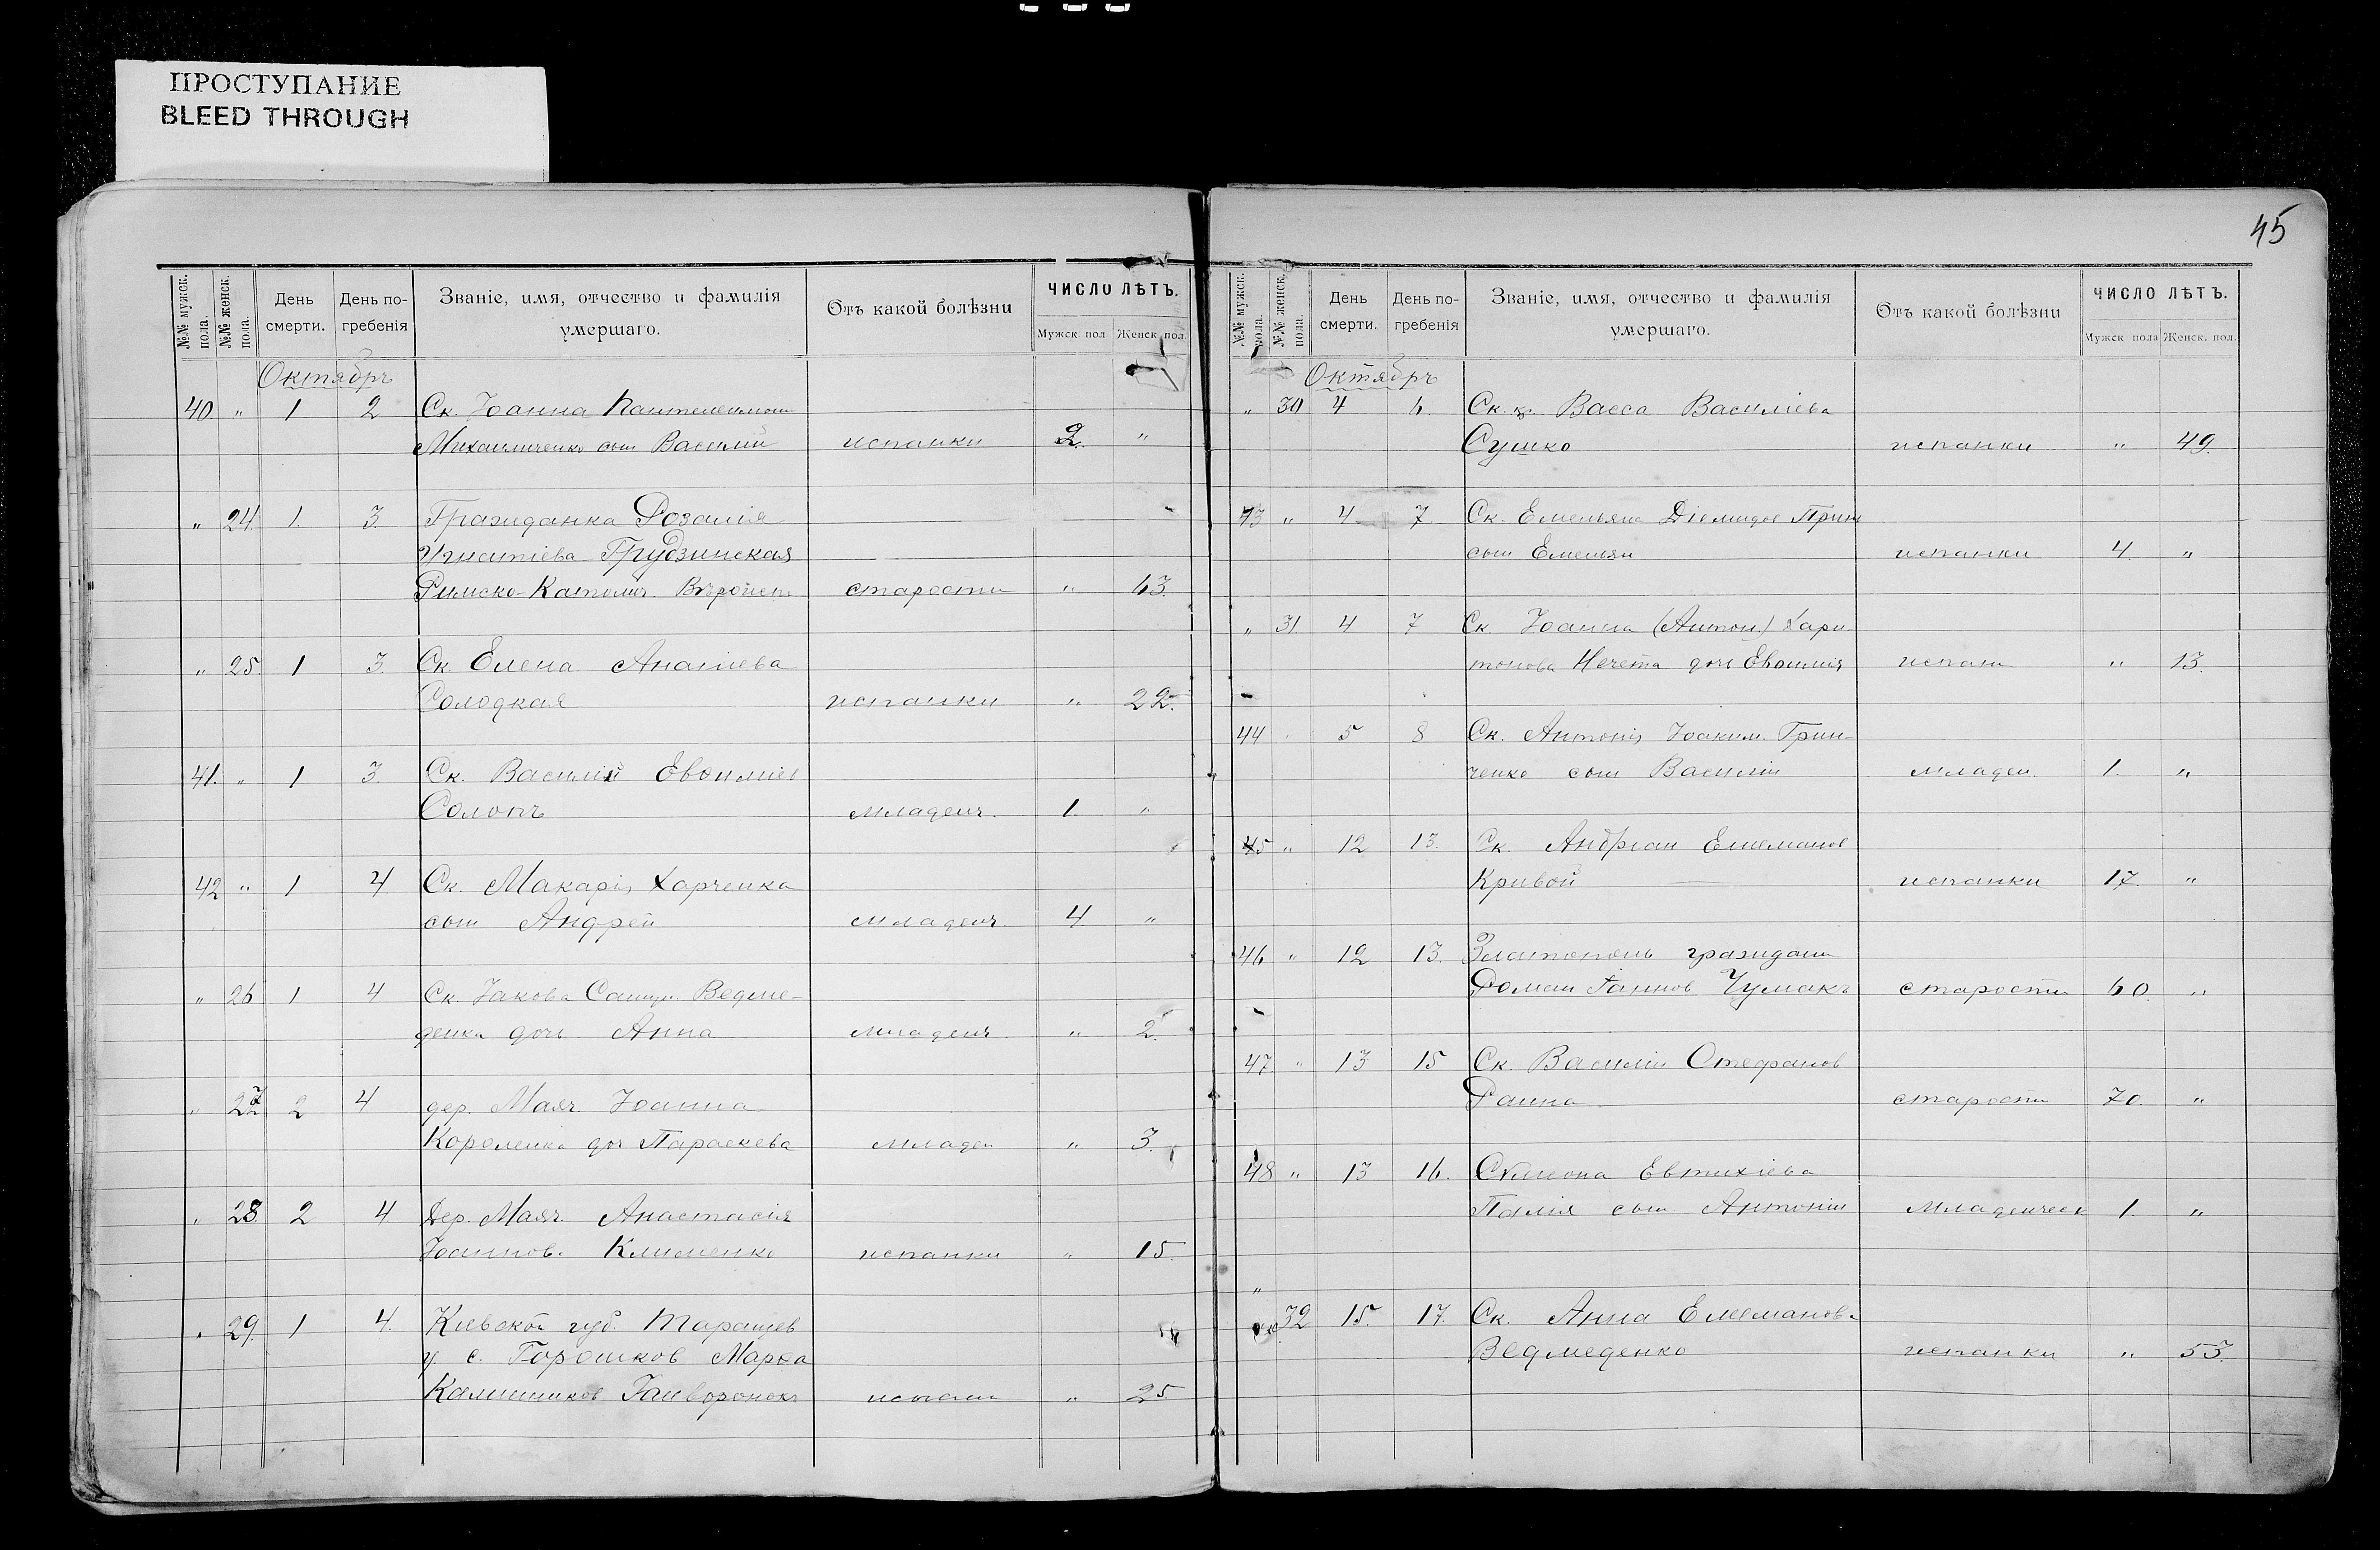 ПРОСТУПАНИЕ
BLEED THROUGH
45
№№ мужск. пола.
№№ женск. пола.
День смерти.
День погребенія
Званіе, имя, отчество и фамилія умершаго.
Отъ какой болѣзни
ЧИСЛО ЛѢТЪ.
Мужск. пол
Женск. пол.
Октябрь
40. " 1 2 Ск. Іоанна Пантелеимон
Михайличенко сын Василий испанки 2. "
" 24. 1. 3. Гражданка Розалія
Игнатіева Грудзинская
Римско-Католич. старости " 63.
" 25. 1 3. Ск. Елена
Солодкая испанки " 22.
41. " 1 3. Ск. Василій Евфиміев
Солопъ младенч. 1. "
42 " 1 4 Ск. Макарія Харченка
сын Андрей младенч. 4. "
" 26 1 4 Ск. Іакова Ведме-
денка дочь Анна младенч " 2.
" 27 2 4 дер. Маяч. Іоанна
Короленка доч Параскева младен " 3.
" 28. 2 4 Дер. Маяч. Анастасія
Іоаннов. Клименко испанки " 15.
" 29. 1 4. Кіевской губ. Таращев
у. с. Горошков Марфа
Гайворонокъ испан " 25
№№ мужск. пола.
№№ женск. пола.
День смерти.
День погребенія
Званіе, имя, отчество и фамилія умершаго.
Отъ какой болѣзни
ЧИСЛО ЛѢТЪ.
Мужск пола
Женск. пол.
Октябрь
" 30 4 6. Ск. Васса Василіева
Сушко испанки " 49.
43 " 4 7 Ск. Емельяна
сын Емельян испанки 4. "
" 31. 4 7 Ск. Іоанна (Антон.) Хари
тонова Нечета доч Евфимія испан " 13.
44 " 5 8 Ск. Антонія Іоаким. Грин-
ченко сын Василій младен. 1. "
45 " 12 13. Ск. Андріан
Кривой испанки 17. "
46 " 12 13. Златополь граждан
Роман Чумакъ старости 60. "
47. " 13 15 Ск. Василій Стефанов
старости 70. "
48 " 13 16. Симеона Евтихіева
Палія сын Антоній Младенческ 1. "
"
32 15. 17. Ск. Анна
Ведмеденко испанки " 53.